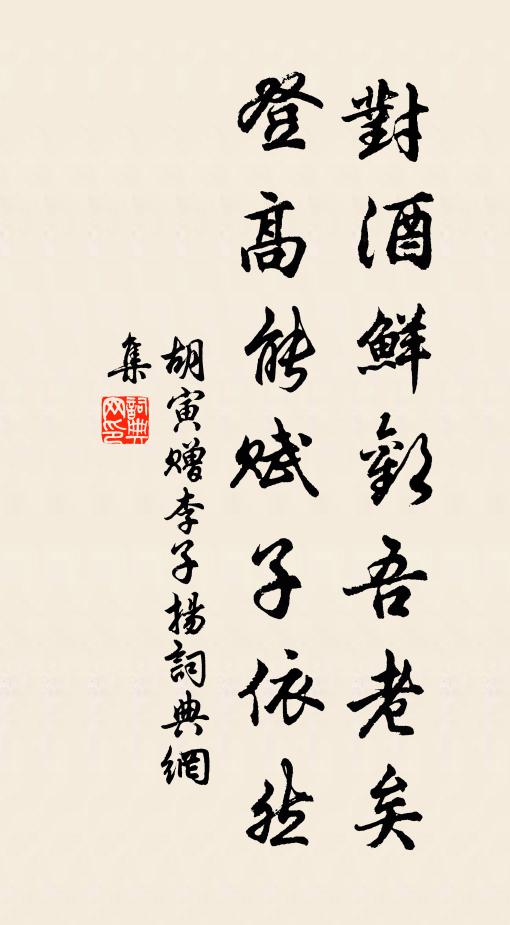 對酒鮮歡吾老矣
登高能賦子依然
胡寅贈李子揚詞典網
集
詞典網印